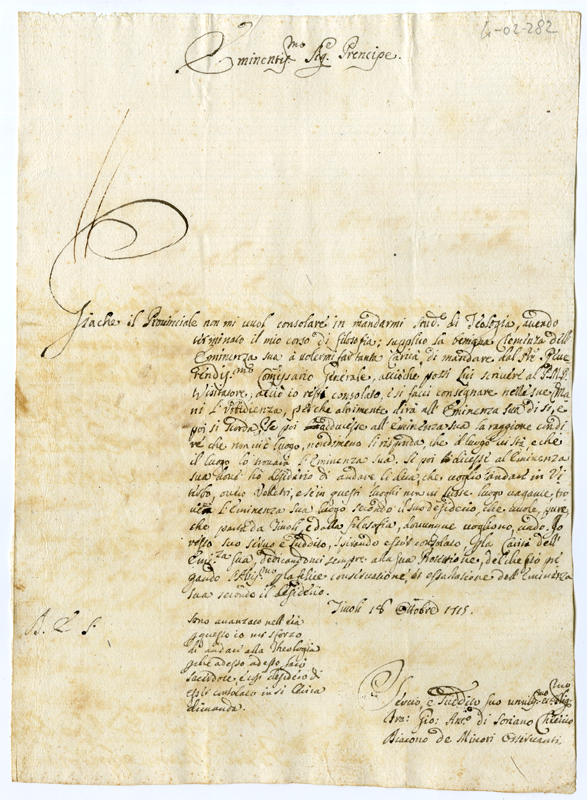 4-02-282
Eminentis.mo Sig. Prencipe.
Giache il Provinciale non mi vuol consolare in mandarmi Stud.e di Teologia, avendo
terminato il mio corso di filosofia; supplico la benigna Clemenza dell'
Eminenza sua à volermi far tanta Carità, di mandare dal P. Reve
rendis.mo Comissario Generale, acciòche possi Lui scrivere al P. M.
acciò io resti consolato, e si facci consegnare nelle sue Ma
ni l'Ubidienza, perche altrimente dirà all'Eminenza sua di si, e
poi si scorda, Se poi adducesse all'Eminenza sua la raggione con di
re che non vi è luogo, nendimeno si risponda che il luogo vi stà, e che
il luogo lo trovarà l'Eminenza sua. Se poi dicesse al Eminenza
sua dove hò desiderio di andare li dica, che voglio andare in Vi
terbo, ovéro Velletri, e se in questi luoghi non vi fusse luogo vacante, tro
verà l'Eminenza sua luogo secondo il suo desiderio, che vuole, pure
che parta da Tivoli, e dalla filosofia, dovunque vogliono, vado. Io
vostro servo e suddito, sperando esser consolato p la Carità dell'
Emi.za sua, dedicandomi sempre alla sua Protezione, del che fò pre
gando p la felice conservazione, et essaltazione dell'Eminenza
sua secondo il desiderio.
Tivoli 18 Ottobre 1715.
Sono avanzato nell'età
p questo io mi sforzo
di andare alla Theologia
p che adesso adesso sarò
sacerdote, e così desidero di
esser consolato in si
dimanda.
B. L. S.
Servo, e Suddito suo umilis.mo
Fra: Gio: Ant.o di Soriano Chierico
Diacono de Minori Osservanti.